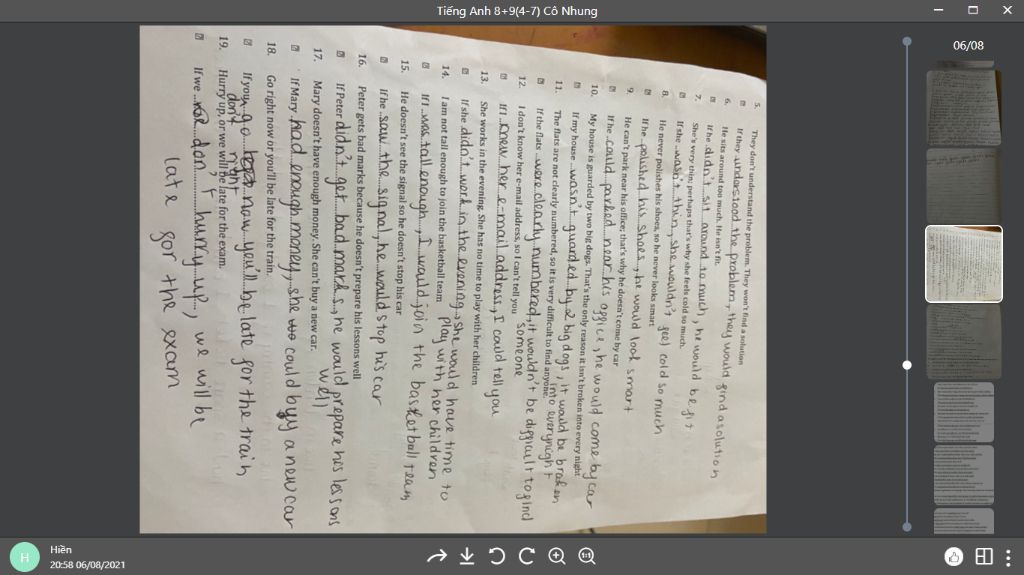 Tiếng Anh 8+9(4-7) Cô Nhung
06/08
5. They don't understand the problem. They won't find a solution
If they understood the problem, they would find a solution
6. He sits around too much. He isn't fit.
If he didn't sit around to much, he would be fit
7. She's very thin; perhaps that's why she feels cold so much.
If she wasn't thin, she wouldn't feel cold so much
8. He never polishes his shoes, so he never looks smart
If he polished his shoes, he would look smart
9. He can't park near his office; that's why he doesn't come by car
If he could parked near his office, he would come by car
10. My house is guarded by two big dogs. That's the only reason it isn't broken into every night
If my house wasn't guarded by 2 big dogs, it would be broken
into everynight
11. The flats are not clearly numbered, so it is very difficult to find anyone.
If the flats were clearly numbered, it wouldn't be difficult to find
someone
12. I don't know her e-mail address, so I can't tell you
If I knew her e-mail address, I could tell you
13. She works in the evening. She has no time to play with her children
If she didn't work in the evening, she would have time to
play with her children
14. I am not tall enough to join the basketball team
If I was tall enough, I would join the basketball team
15. He doesn't see the signal so he doesn't stop his car
If he saw the signal, he would stop his car
16. Peter gets bad marks because he doesn't prepare his lessons well
If Peter didn't get bad marks, he would prepare his lessons
well
17. Mary doesn't have enough money. She can't buy a new car.
If Mary had enough money, she could buy a new car
18. Go right now or you'll be late for the train.
If you go now you'll be late for the train
don't right
19. Hurry up, or we will be late for the exam.
If we don't hurry up, we will be
late for the exam
H
Hiền
20:58 06/08/2021
1:1